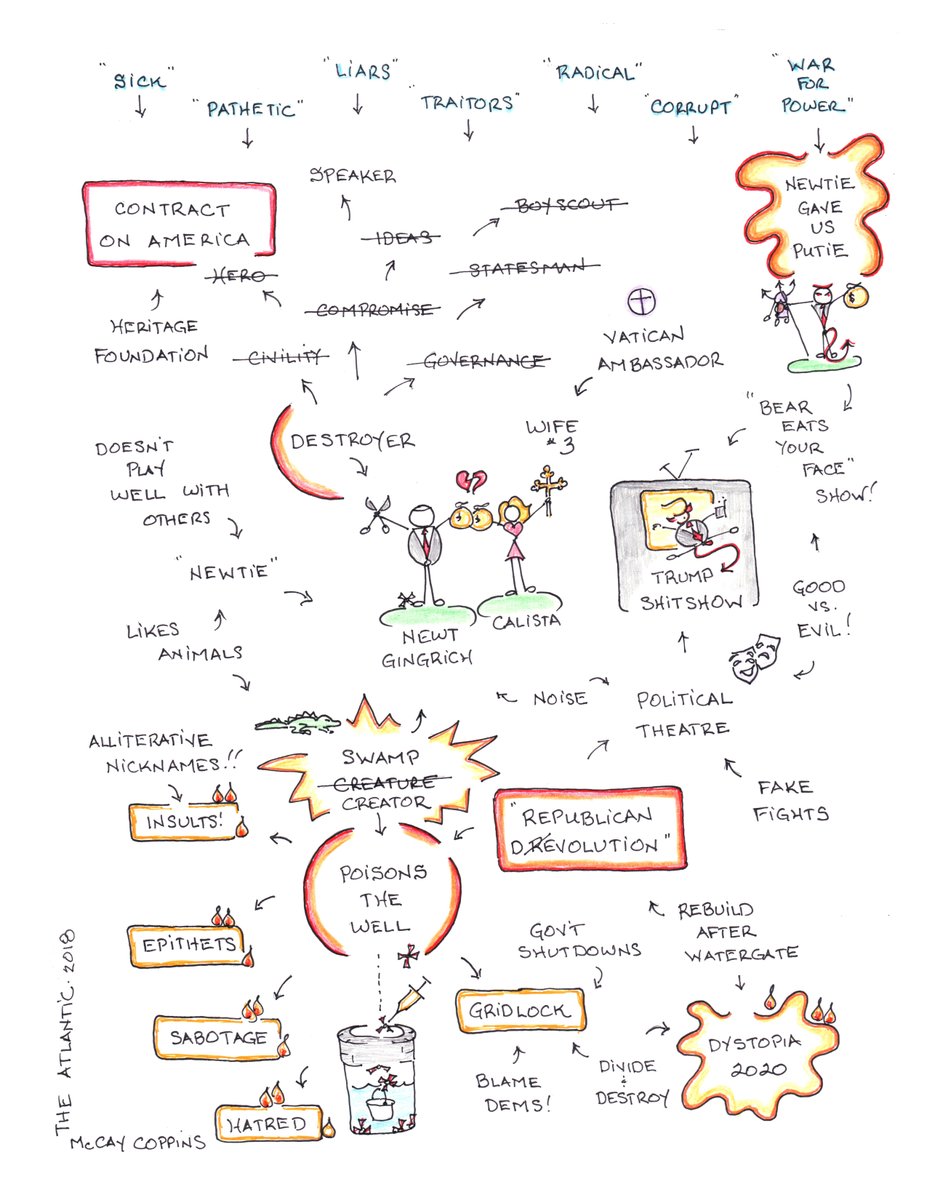 "SICK"
"PATHETIC"
"LIARS"
"TRAITORS"
"RADICAL"
"CORRUPT"
"WAR
FOR
POWER"
CONTRACT
ON AMERICA
SPEAKER
BOYSCOUT
IDEAS
STATESMAN
HERO
COMPROMISE
HERITAGE
FOUNDATION
CIVILITY
GOVERNANCE
VATICAN
AMBASSADOR
NEWTIE
GAVE
US
PUTIE
$
"BEAR
EATS
YOUR
FACE"
SHOW!
DESTROYER
WIFE
#3
DOESN'T
PLAY
WELL WITH
OTHERS
"NEWTIE"
LIKES
ANIMALS
$ $
NEWT
GINGRICH
CALISTA
TRUMP
SHITSHOW
GOOD
VS.
EVIL!
NOISE
POLITICAL
THEATRE
FAKE
FIGHTS
ALLITERATIVE
NICKNAMES!!
SWAMP
CREATURE
CREATOR
INSULTS!
"REPUBLICAN
DREVOLUTION"
POISONS
THE
WELL
EPITHETS
SABOTAGE
HATRED
GOV'T
SHUTDOWNS
REBUILD
AFTER
WATERGATE
GRIDLOCK
BLAME
DEMS!
DIVIDE
&
DESTROY
DYSTOPIA
2020
THE ATLANTIC. 2018
McCAY COPPINS